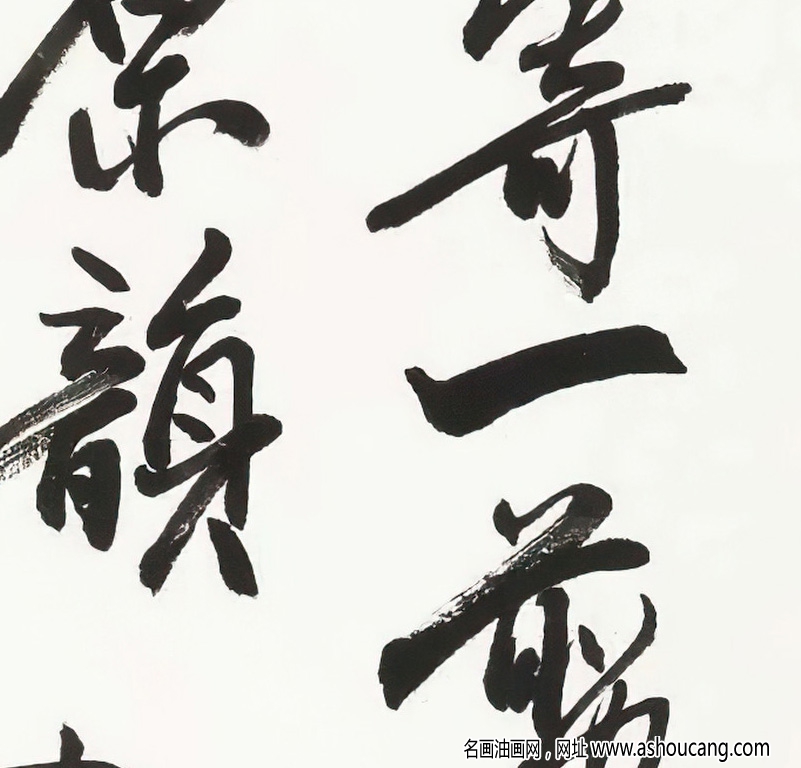 寄一剪
韻
名画油画网，网址 www.ashoucang.com